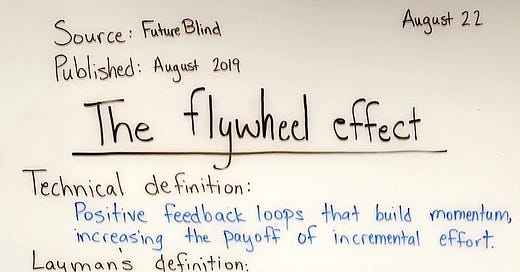 Source: FutureBlind
August 22
Published: August 2019
The flywheel effect
Technical definition:
Positive feedback loops that build momentum,
increasing the payoff of incremental effort.
Layman's definition: